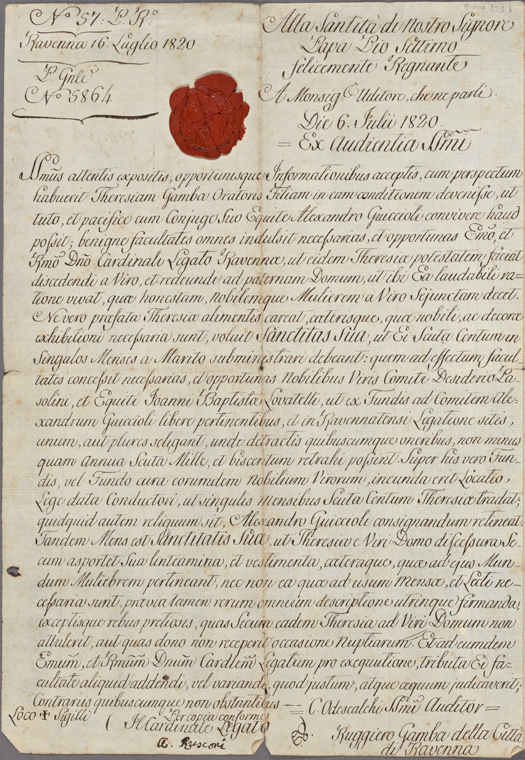 N.º 57: P. Rº
Ravenna 16. Luglio 1820
P. Gnle
Nº 5864
Alla Santità di Nostro Signore
Papa Pio Settimo
felicemente Regnante
A Monsig.r Uditore, che ne parli.
Die 6. Julii 1820.
= Ex Audientia SSmi
SSmus attentis expositis, opportunisque Informationibus acceptis, cum perspectum
habuerit Theresiam Gamba Oratoris Filiam in eam conditionem devenisse, ut
tuto, et pacifice cum Conjuge Suo Equite Alexandro Guiccioli convivere haud
possit; benigne facultates omnes indulsit necessarias, et opportunas Emo, et
Rmo Dño Cardinali Legato Ravennæ, ut eidem Theresiæ potestatem faciat
discedendi a Viro, et redeundi ad paternam Domum, ut ibi Eâ laudabili ra-
tione vivat, quæ honestam, nobilemque Mulierem a Viro Sejunctam decet.
Ne vero præfata Theresia alimentis careat, cæterisque, quæ nobili, ac decoræ
exhibitioni necessaria sunt, voluit Sanctitas Sua, ut Ei Scuta Centum in
Singulos Menses a Marito subministrari debeant: quem ad effectum facul-
tates concessit necessarias, et opportunas Nobilibus Viris Comiti Desiderio Pa-
solini, et Equiti Joanni Baptistæ Lovatelli, ut ex Fundis ad Comitem Ale-
xandrum Guiccioli libere pertinentibus, et in Ravennatensi Legatione sitis,
unum, aut plures seligant, unde detractis quibuscumque oneribus, non minus
quam Annua Scuta Mille, et biscentum retrahi possint. Super his vero Fun-
dis, vel Fundo cura eorumdem Nobilium Virorum, ineunda erit Locatio,
Lege data Conductori, ut singulis mensibus Scuta Centum Theresiæ tradat;
quidquid autem reliquum sit, Alexandro Guiccioli consignandum retineat.
Tandem Mens est Sanctitatis Suæ, ut Theresia e Viri Domo discessura Se-
cum asportet Sua linteamina, et vestimenta, cæteraque, quæ ad ejus Mun-
dum Muliebrem pertineant, nec non ea quæ ad usum mensæ, et Lecti ne-
cessaria sunt, prævia tamen rerum omnium descriptione utrinque firmanda,
exceptisque rebus pretiosis, quas Secum eadem Theresia ad Viri Domum non
attulerit, aut quas dono non receperit occasione Nuptiarum. Et ad eumdem
Emum, et Rmum Dnum Cardlem Legatum pro exequutione, tributa Ei fa-
cultate aliquid addendi, vel variandi, quod justum, atque æquum judicaverit;
Contrariis quibuscumque non obstantibus — C. Odescalchi SSmi Auditor =
Loco + Sigilli
Per copia conforme
Il Cardinale Legato
A. Rusconi
Di Ruggiero Gamba della Città
di Ravenna